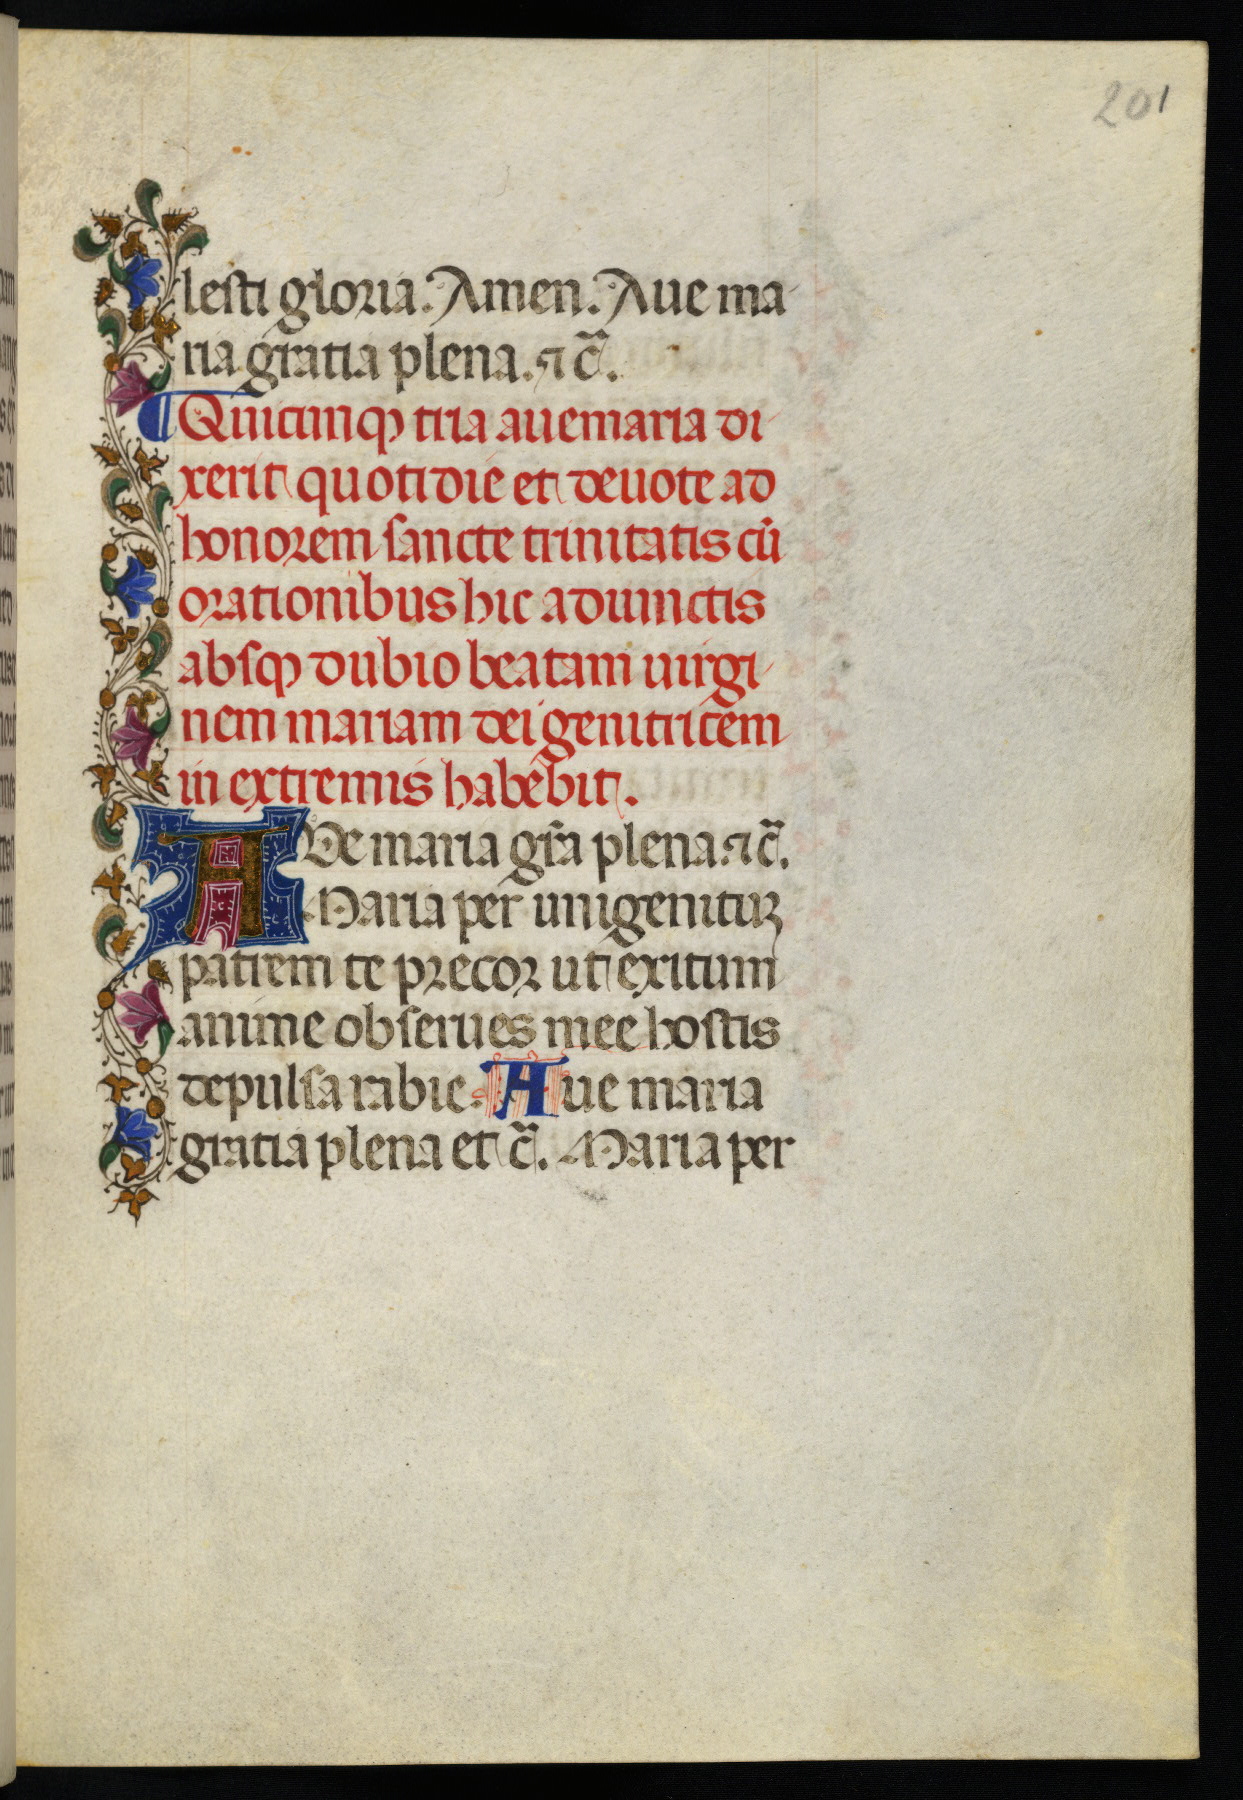 201
lesti gloria. Amen. Aue ma
ria gratia plena. ⁊ c̄.
¶ Quicunqꝫ tria auemaria di
xerit quotidie et deuote ad
honorem sancte trinitatis cū
orationibus hic adiunctis
absqꝫ dubio beatam uirgi
nem mariam dei genitricem
in extremis habebit.
AVe maria gr̄a plena. ⁊ c̄.
Maria per unigenituꝫ
patrem te precor ut exitum
anime obserues mee hostis
depulsa rabie. Aue maria
gratia plena et c̄. Maria per